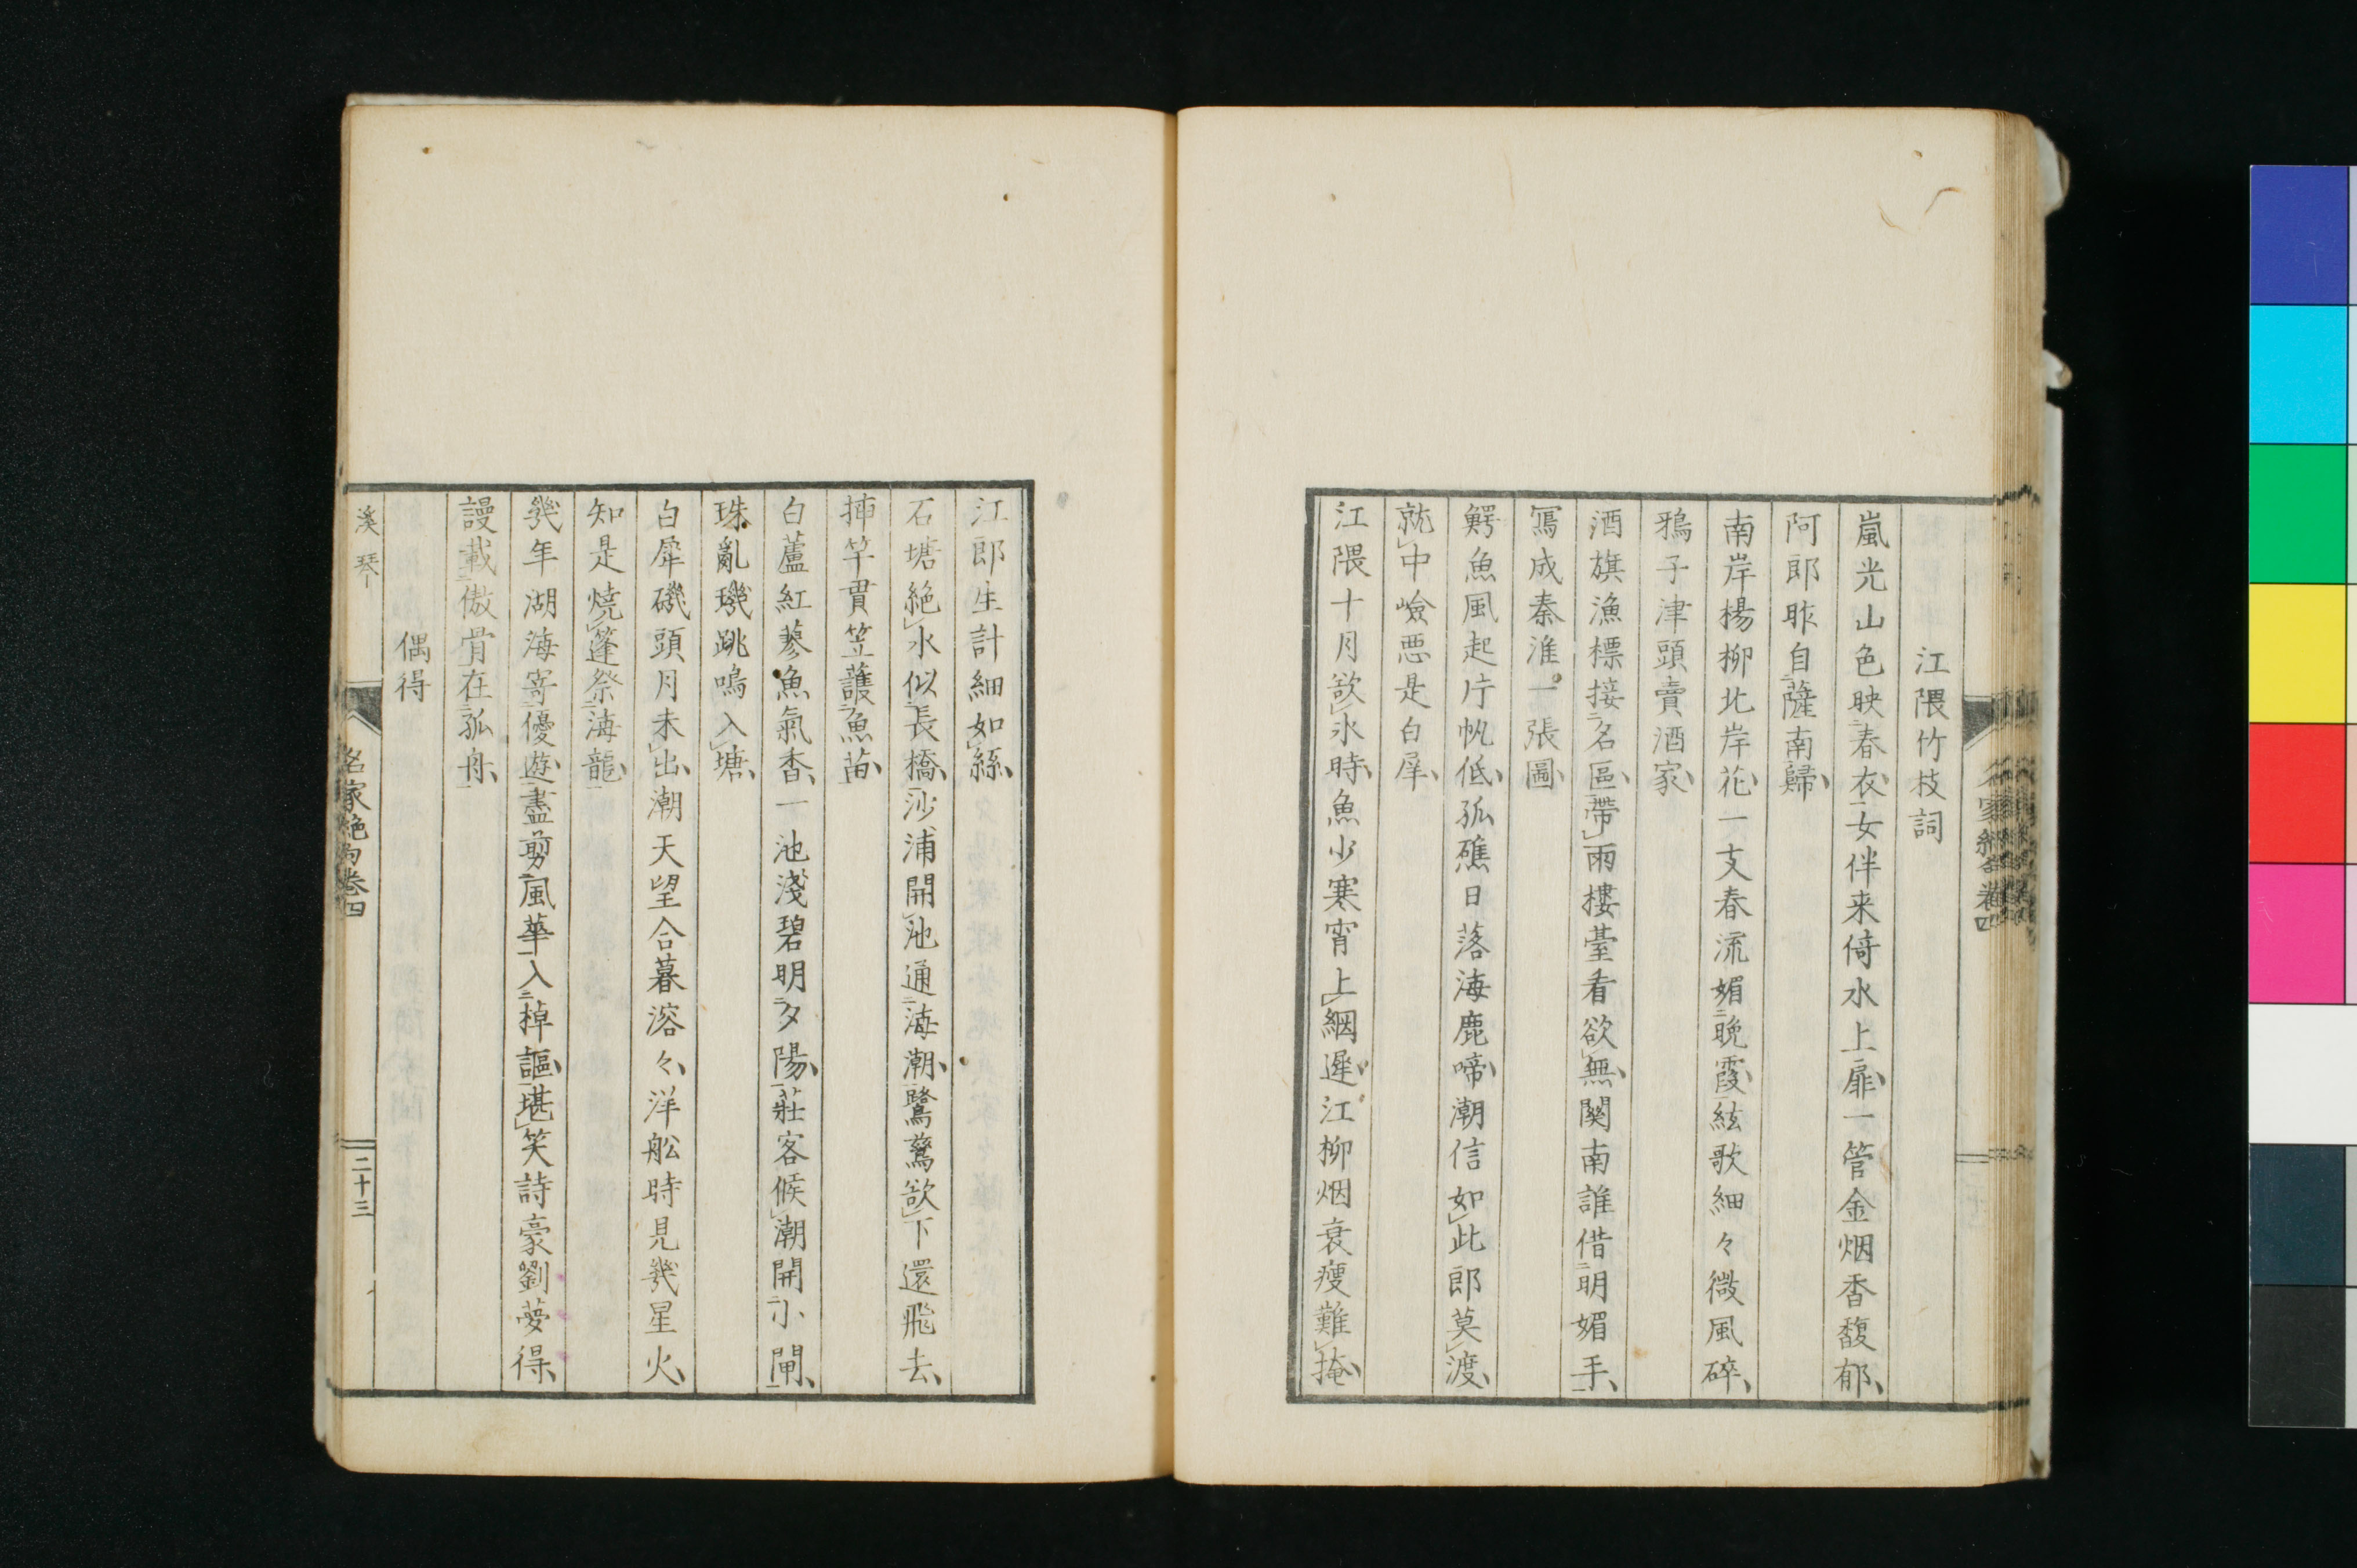 江隈竹枝詞
嵐光山色映春衣女伴来倚水上扉一管金烟香馥郁
阿郎昨自薩南歸
南岸楊柳北岸花一支春流媚晩霞絃歌細々微風碎
鴉子津頭賣酒家
酒旗漁標接名區帶雨樓臺看欲無闋南誰借明媚手
冩成秦淮一張圖
鰐魚風起片帆低孤礁日落海鹿啼潮信如此郎莫渡
就中嶮悪是白犀
江隈十月欲氷時魚少寒宵上網遲江柳烟衰瘦難掩
江郎生計細如絲
石塘絶水似長橋沙浦開池通海潮鷺鷥欲下還飛去
挿竿貫笠護魚苗
白蘆紅蓼魚氣香一池淺碧明夕陽莊客候潮開小閘
珠亂璣跳鳴入塘
白犀磯頭月未出潮天望合暮溶々洋舩時見幾星火
知是燒篷祭海龍
幾年湖海寄優遊盡剪風華入棹謳堪笑詩豪劉夢得
謾載傲骨在孤舟
偶得
溪琴
名家絶句巻四
二十三